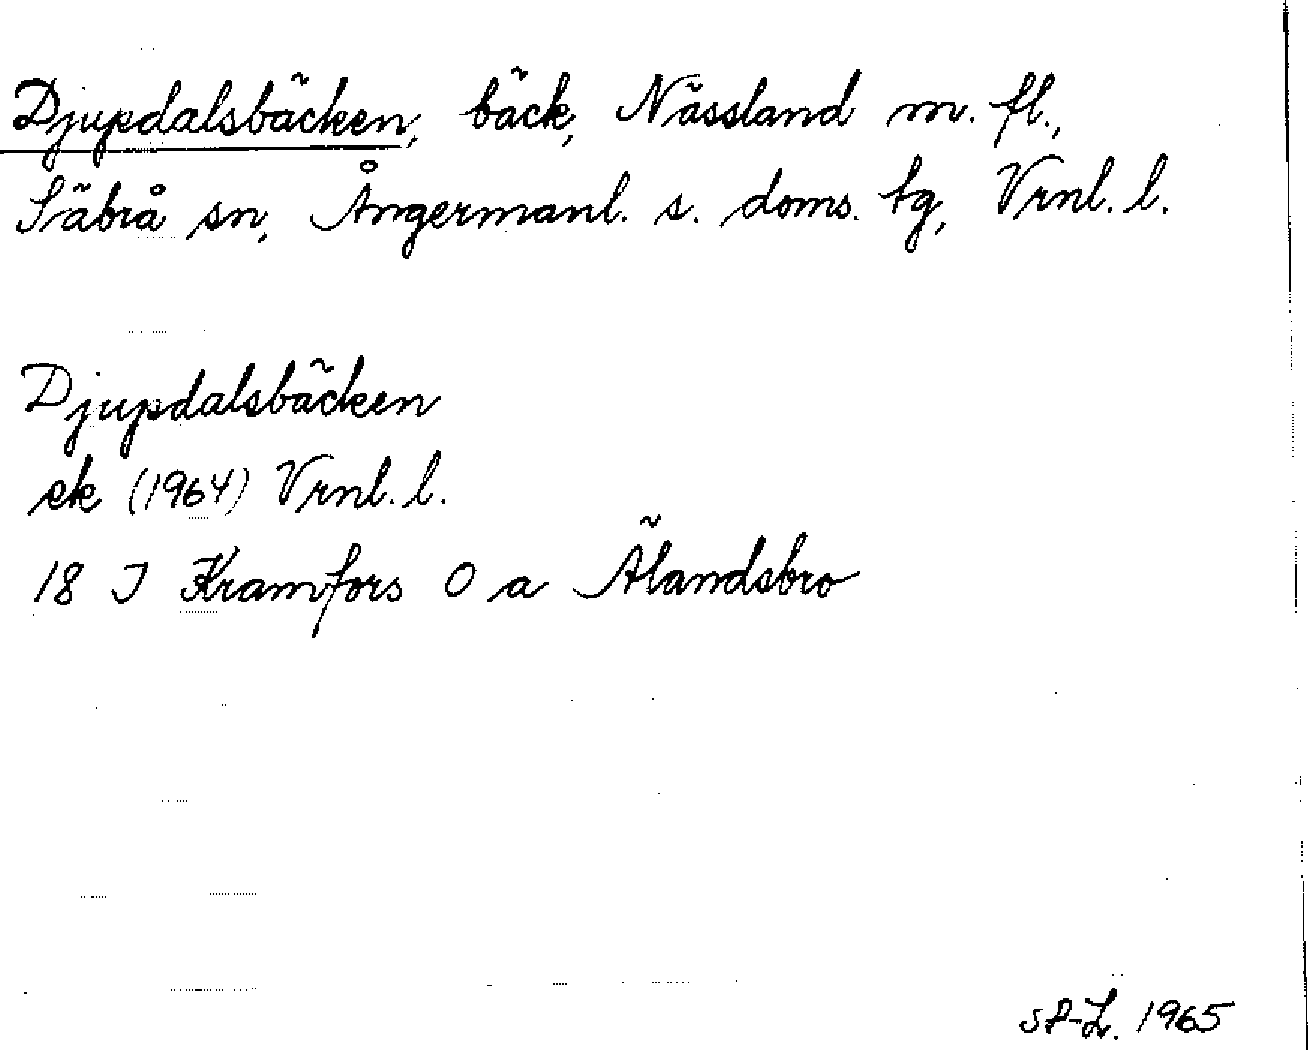 Djupdalsbäcken, bäck, Nässland m. fl.,
Säbrå sn, Ångermanl. s. doms. tg, Vrnl. l.
Djupdalsbäcken
ek (1964) Vrnl. l.
18 J Kramfors O a Älandsbro
1965